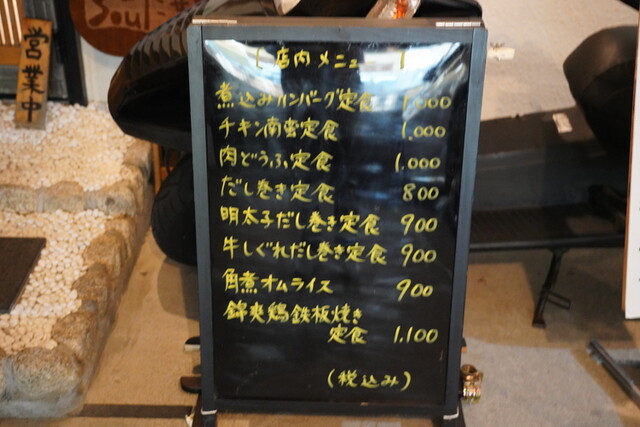 Soul
営業中
[店内メニュー]
煮込みハンバーグ定食 1,000
チキン南蛮定食 1,000
肉どうふ定食 1,000
だし巻き定食 800
明太子だし巻き定食 900
牛しぐれだし巻き定食 900
角煮オムライス 900
錦爽鶏鉄板焼き
定食 1,100
(税込み)